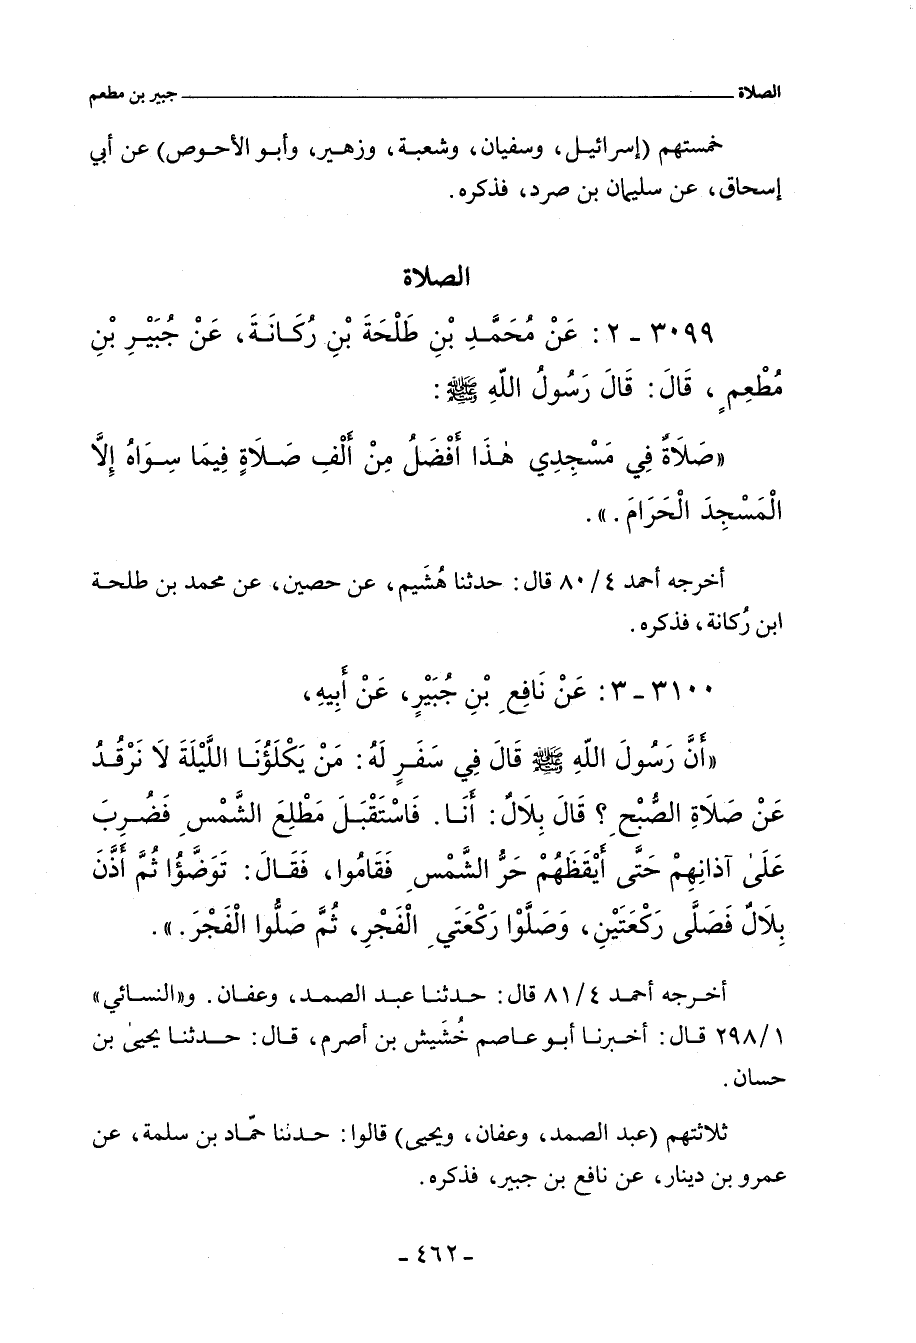 الصلاة ــــــــــ جبير بن مطعم
خمستهم (إسرائيل، وسفيان، وشعبة، وزهير، وأبو الأحوص) عن أبي
إسحاق، عن سليمان بن صرد، فذكره.
الصلاة
٣٠٩٩ ـ ٢: عَنْ مُحَمَّدِ بْنِ طَلْحَةَ بْنِ رُكَانَةَ، عَنْ جُبَيْرِ بْنِ
مُطْعِمٍ، قَالَ: قَالَ رَسُولُ اللّهِ ﷺ:
«صَلَاةٌ فِي مَسْجِدِي هٰذَا أَفْضَلُ مِنْ أَلْفِ صَلَاةٍ فِيمَا سِوَاهُ إِلَّا
الْمَسْجِدَ الْحَرَامَ.».
أخرجه أحمد ٤/٨٠ قال: حدثنا هُشَيم، عن حصين، عن محمد بن طلحة
ابن رُكانة، فذكره.
٣١٠٠ ـ ٣: عَنْ نَافِعِ بْنِ جُبَيْرٍ، عَنْ أَبِيهِ،
«أَنَّ رَسُولَ اللّهِ ﷺ قَالَ فِي سَفَرٍ لَهُ: مَنْ يَكْلَؤُنَا اللَّيْلَةَ لَا نَرْقُدُ
عَنْ صَلَاةِ الصُّبْحِ؟ قَالَ بِلَالٌ: أَنَا. فَاسْتَقْبَلَ مَطْلِعَ الشَّمْسِ فَضُرِبَ
عَلَىٰ آذَانِهِمْ حَتَّى أَيْقَظَهُمْ حَرُّ الشَّمْسِ فَقَامُوا، فَقَالَ: تَوَضَّؤُا ثُمَّ أَذَّنَ
بِلَالٌ فَصَلَّى رَكْعَتَيْنِ، وَصَلَّوْا رَكْعَتَيِ الْفَجْرِ، ثُمَّ صَلُّوا الْفَجْرَ.».
أخرجه أحمد ٤/٨١ قال: حدثنا عبد الصمد، وعفان. و«النسائي»
١/٢٩٨ قال: أخبرنا أبو عاصم خُشَيش بن أصرم، قال: حدثنا يحيىٰ بن
حسان.
ثلاثتهم (عبد الصمد، وعفان، ويحيى) قالوا: حدثنا حمّاد بن سلمة، عن
عمرو بن دينار، عن نافع بن جبير، فذكره.
ـ ٤٦٢ ـ